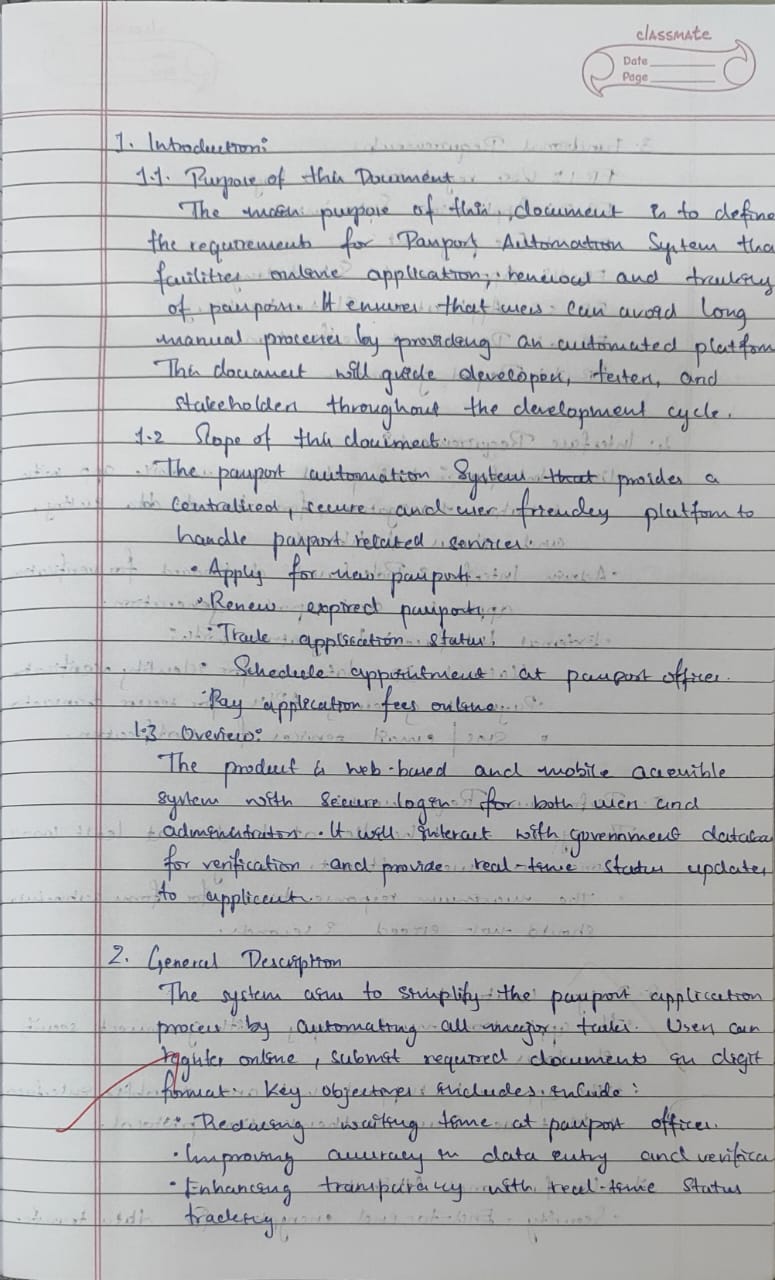 classmate
Date
Page
1. Introduction:
1.1. Purpose of this Document
The main purpose of this document is to define
the requirements for Passport Automation System tha
facilities online application, renewal and tracking
of passports. It ensures that users can avoid long
manual processes by providing an automated platform
This document will guide developers, testers, and
stakeholders throughout the development cycle.
1.2 Slope of this document:
The passport automation System that proides a
centralised, secure and user friendley platform to
handle passport related services.
• Apply for new passport.
• Renew expired passports.
• Track application status.
• Schedule appointment at passport offices.
• Pay application fees online.
1.3 Overview:
The product is web-based and mobile accessible
system with secure login for both users and
administrators. It will interact with government databa
for verification and provide real-time status updates
to applicant.
2. General Description
The system aims to simplify the passport application
process by automating all major tasks. Users can
register online, submit required documents in digit
format. Key objectives includes include:
• Reducing waiting time at passport offices.
• Improving accuracy in data entry and verifica
• Enhancing transparancy with real-time status
tracking